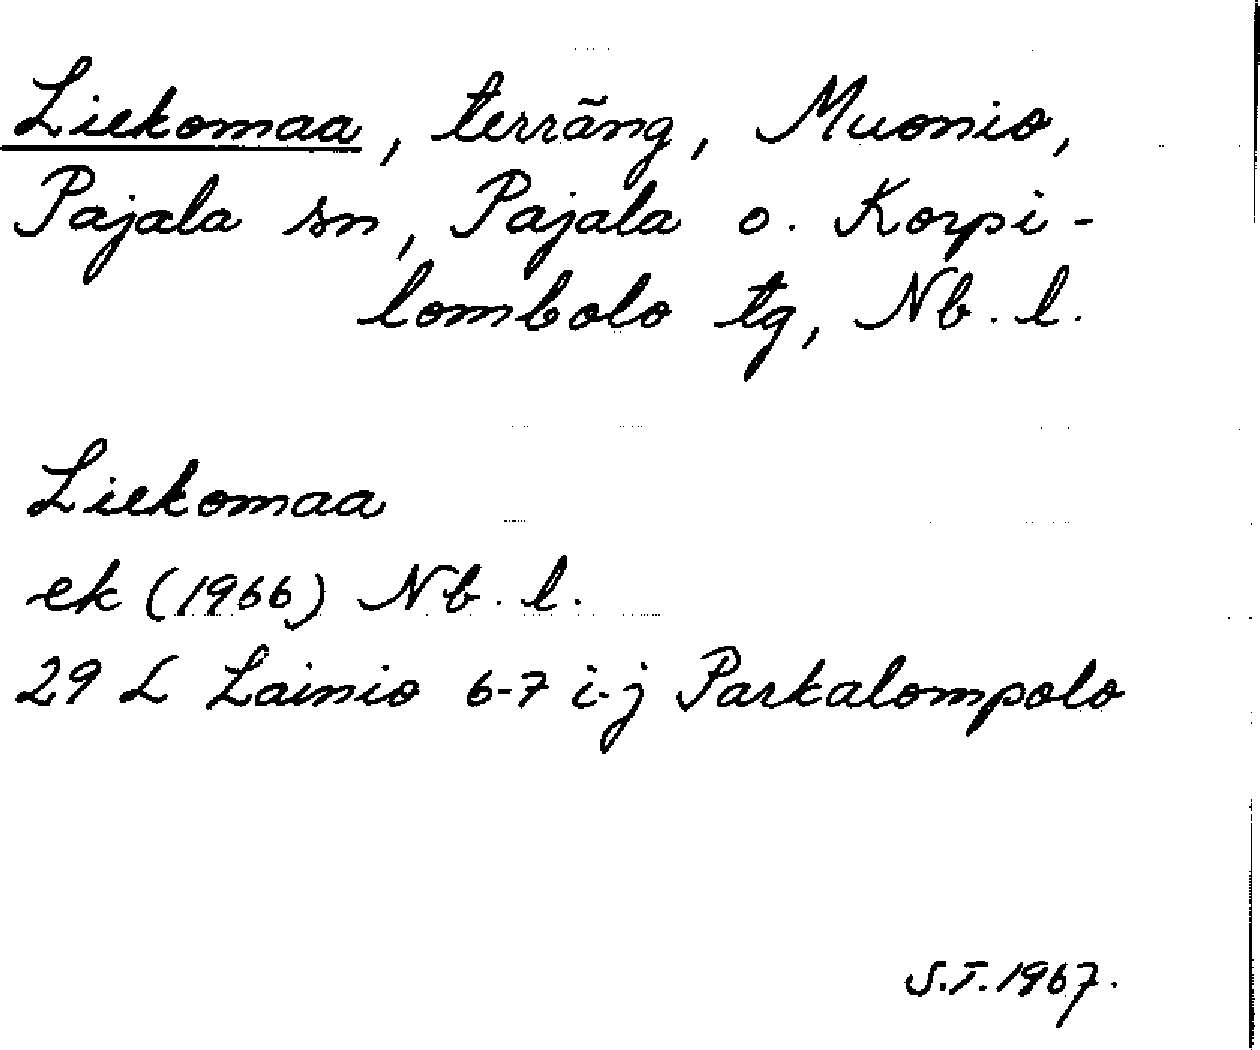 Liekomaa, terräng, Muonio,
Pajala sn, Pajala o. Korpi-
lombolo tg, Nb. l.
Liekomaa
ek (1966) Nb. l.
29 L Lainio 6-7 i-j Parkalompolo
S.T. 1967.